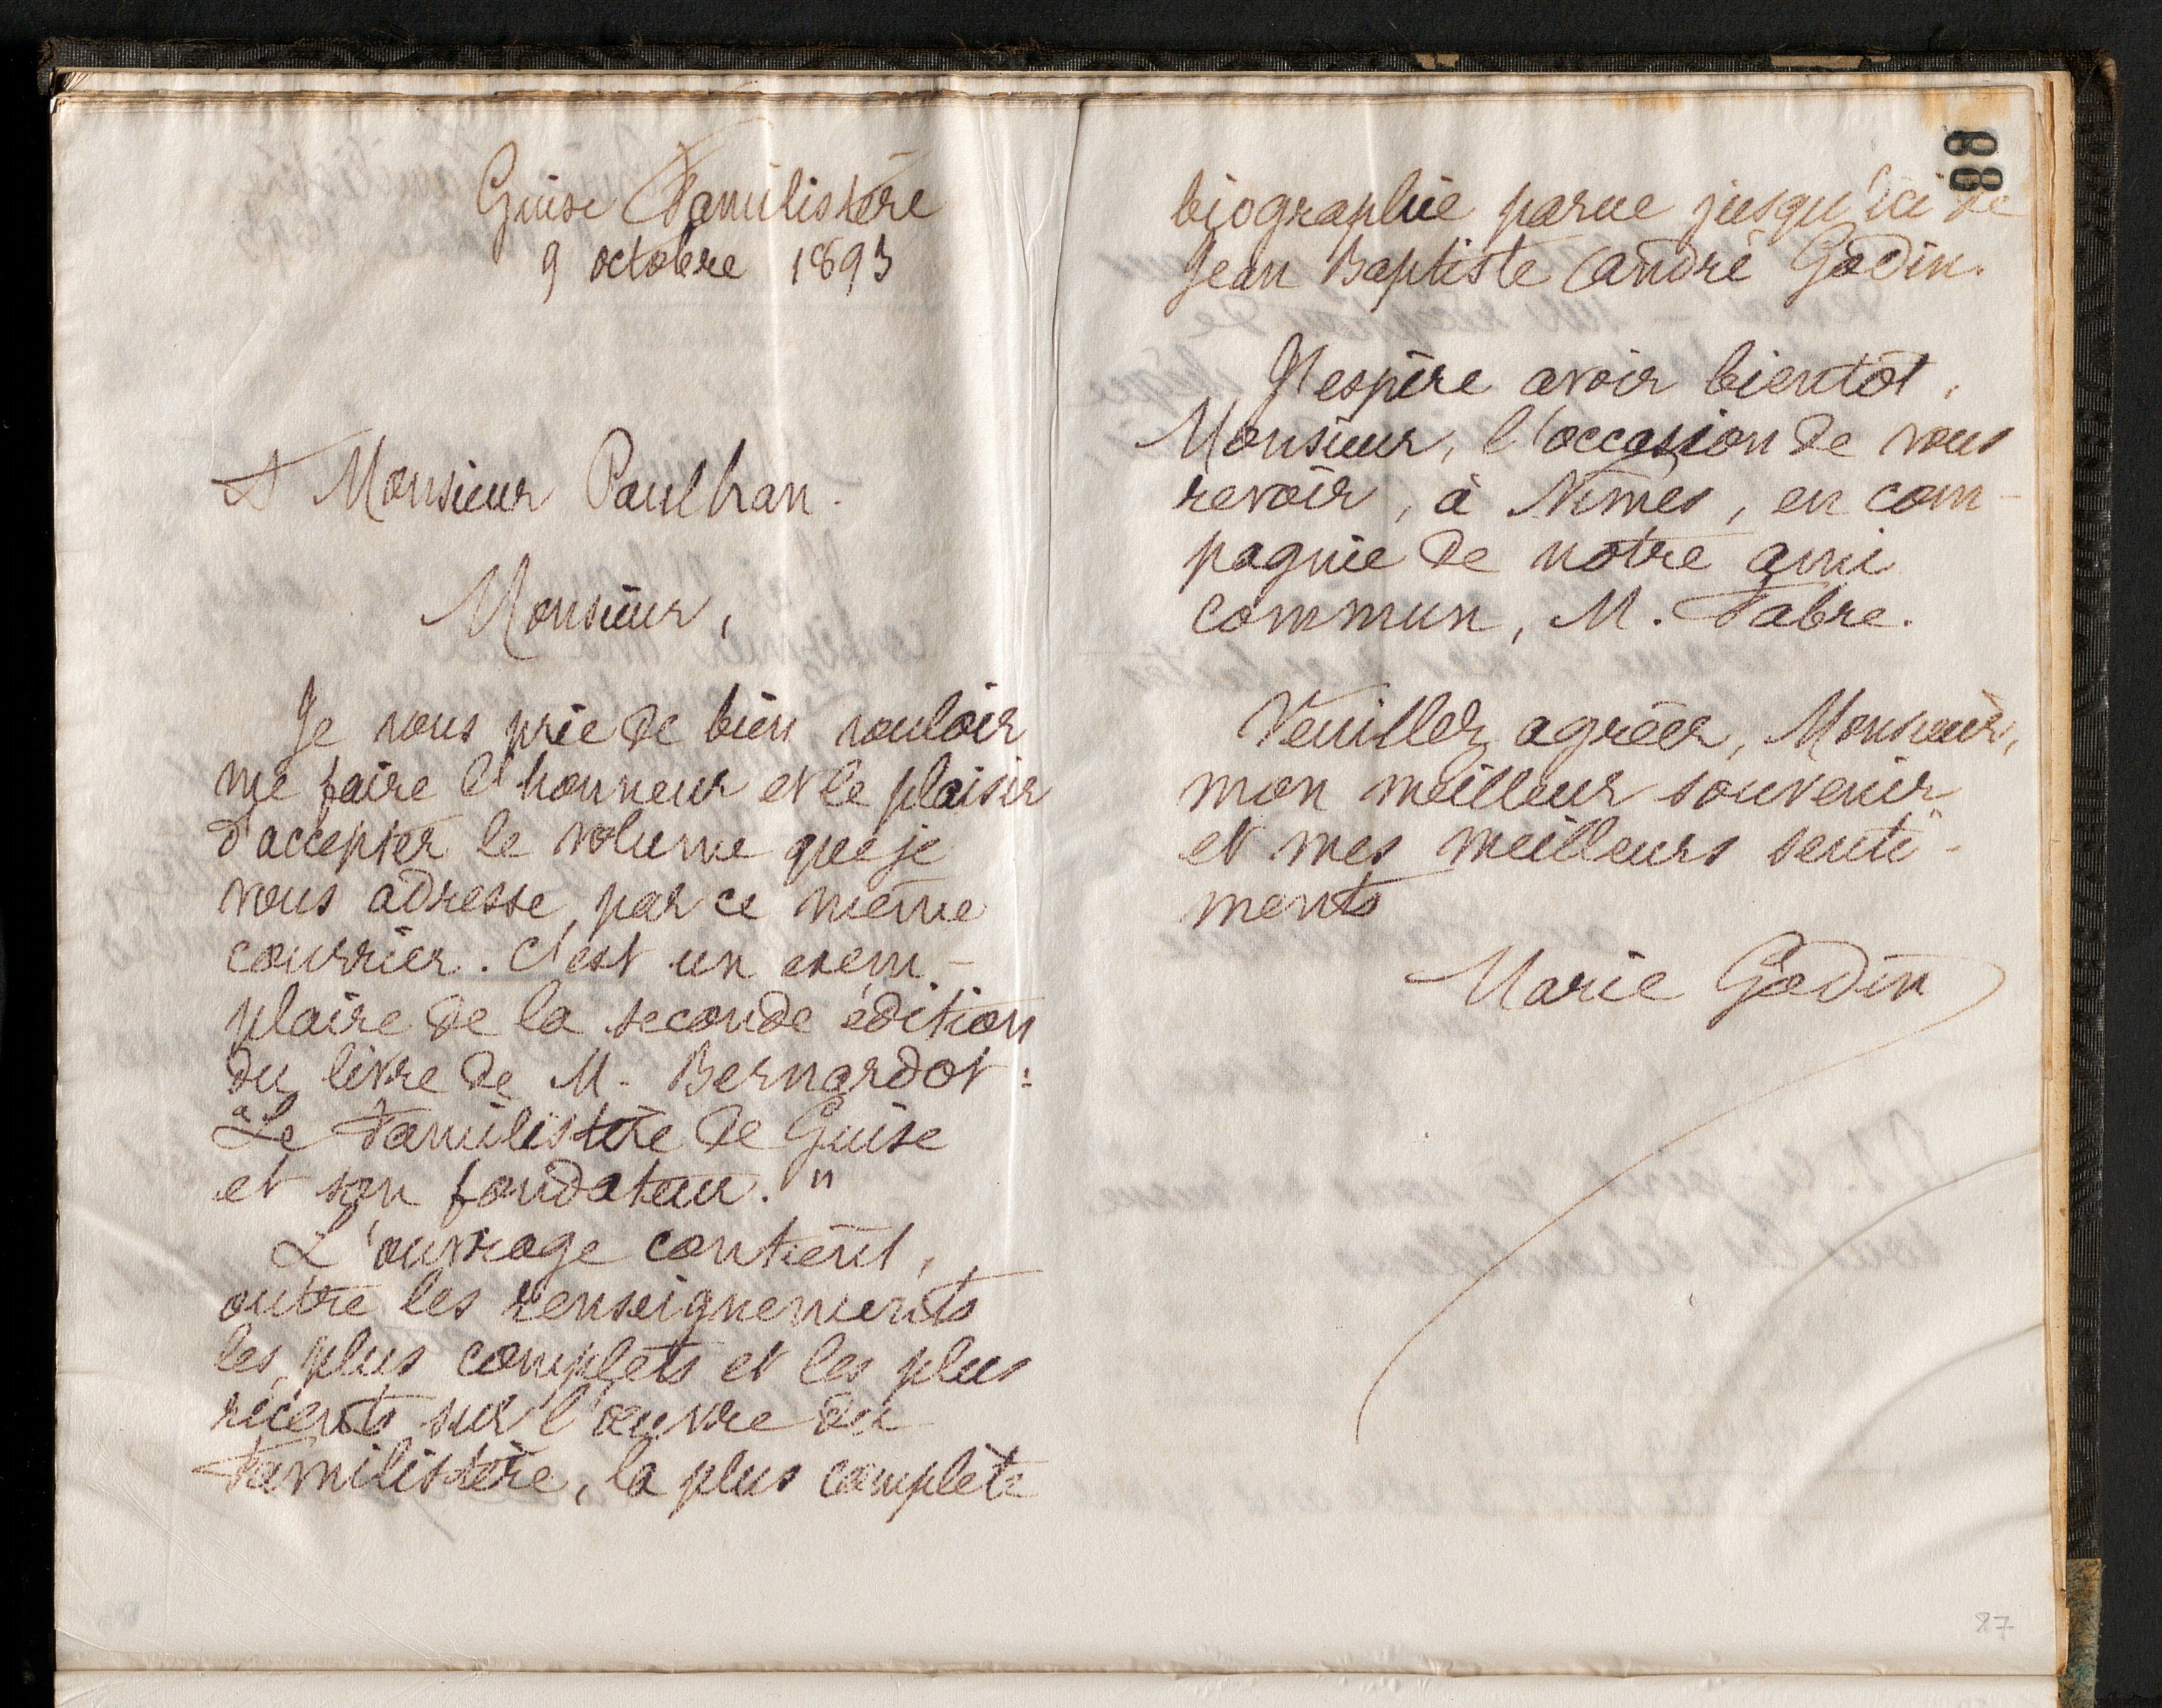 Guise Familistère
9 octobre 1893
A Monsieur Paulhan.
Monsieur,
Je vous prie de bien vouloir
me faire l'honneur et le plaisir
d'accepter le volume que je
vous adresse, par ce même
courrier. C'est un exem-
plaire de la seconde édition
du livre de M. Bernardot :
"Le Familistère de Guise
et son fondateur."
L'ouvrage contient,
outre les renseignements
les plus complets et les plus
récents sur l'œuvre du
Familistère, la plus complète
88
biographie parue jusqu'ici de
Jean Baptiste André Godin.
J'espère avoir bientôt,
Monsieur, l'occasion de vous
revoir, à Nîmes, en com-
pagnie de notre ami
commun, M. Fabre.
Veuillez agréer, Monsieur,
mon meilleur souvenir
et mes meilleurs senti-
ments
Marie Godin
87